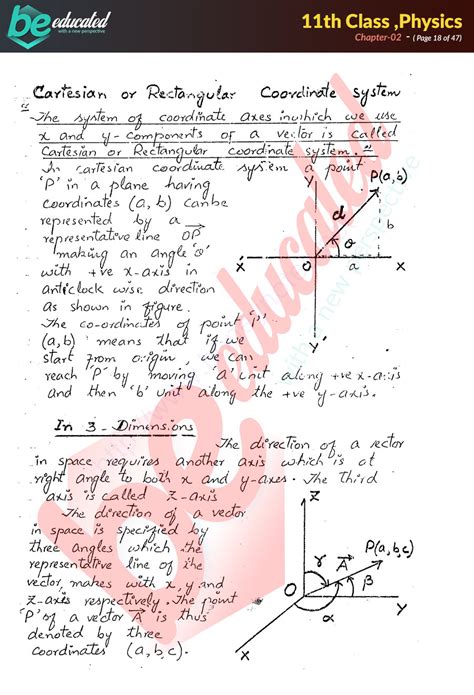 be educated
with a new perspective
11th Class ,Physics
Chapter-02 - ( Page 18 of 47)
Cartesian or Rectangular Coordinate system
"The system of coordinate axes in which we use
x and y- components of a vector is called
Cartesian or Rectangular coordinate system."
In cartesian coordinate system a point
'P' in a plane having
coordinates (a, b) can be
represented by a
representative line OP
making an angle 'θ'
with +ve x-axis in
anticlock wise direction
as shown in figure.
The co-ordinates of point 'P'
(a, b) means that if we
start from origin, we can
reach 'P' by moving 'a' unit along +ve x-axis
and then 'b' unit along the +ve y-axis.
Y
P(a, b)
d
b
θ
X
O
a
X
Y'
In 3 - Dimensions
The direction of a vector
in space requires another axis which is at
right angle to both x and y-axes. The third
axis is called Z-axis
The direction of a vector
in space is specified by
three angles which the
representative line of the
vector, makes with x, y and
Z-axis respectively. The point
'P' of a vector A is thus
denoted by three
coordinates (a, b, c).
Z
P(a, b, c)
γ
A
β
O
α
Y
X
be educated